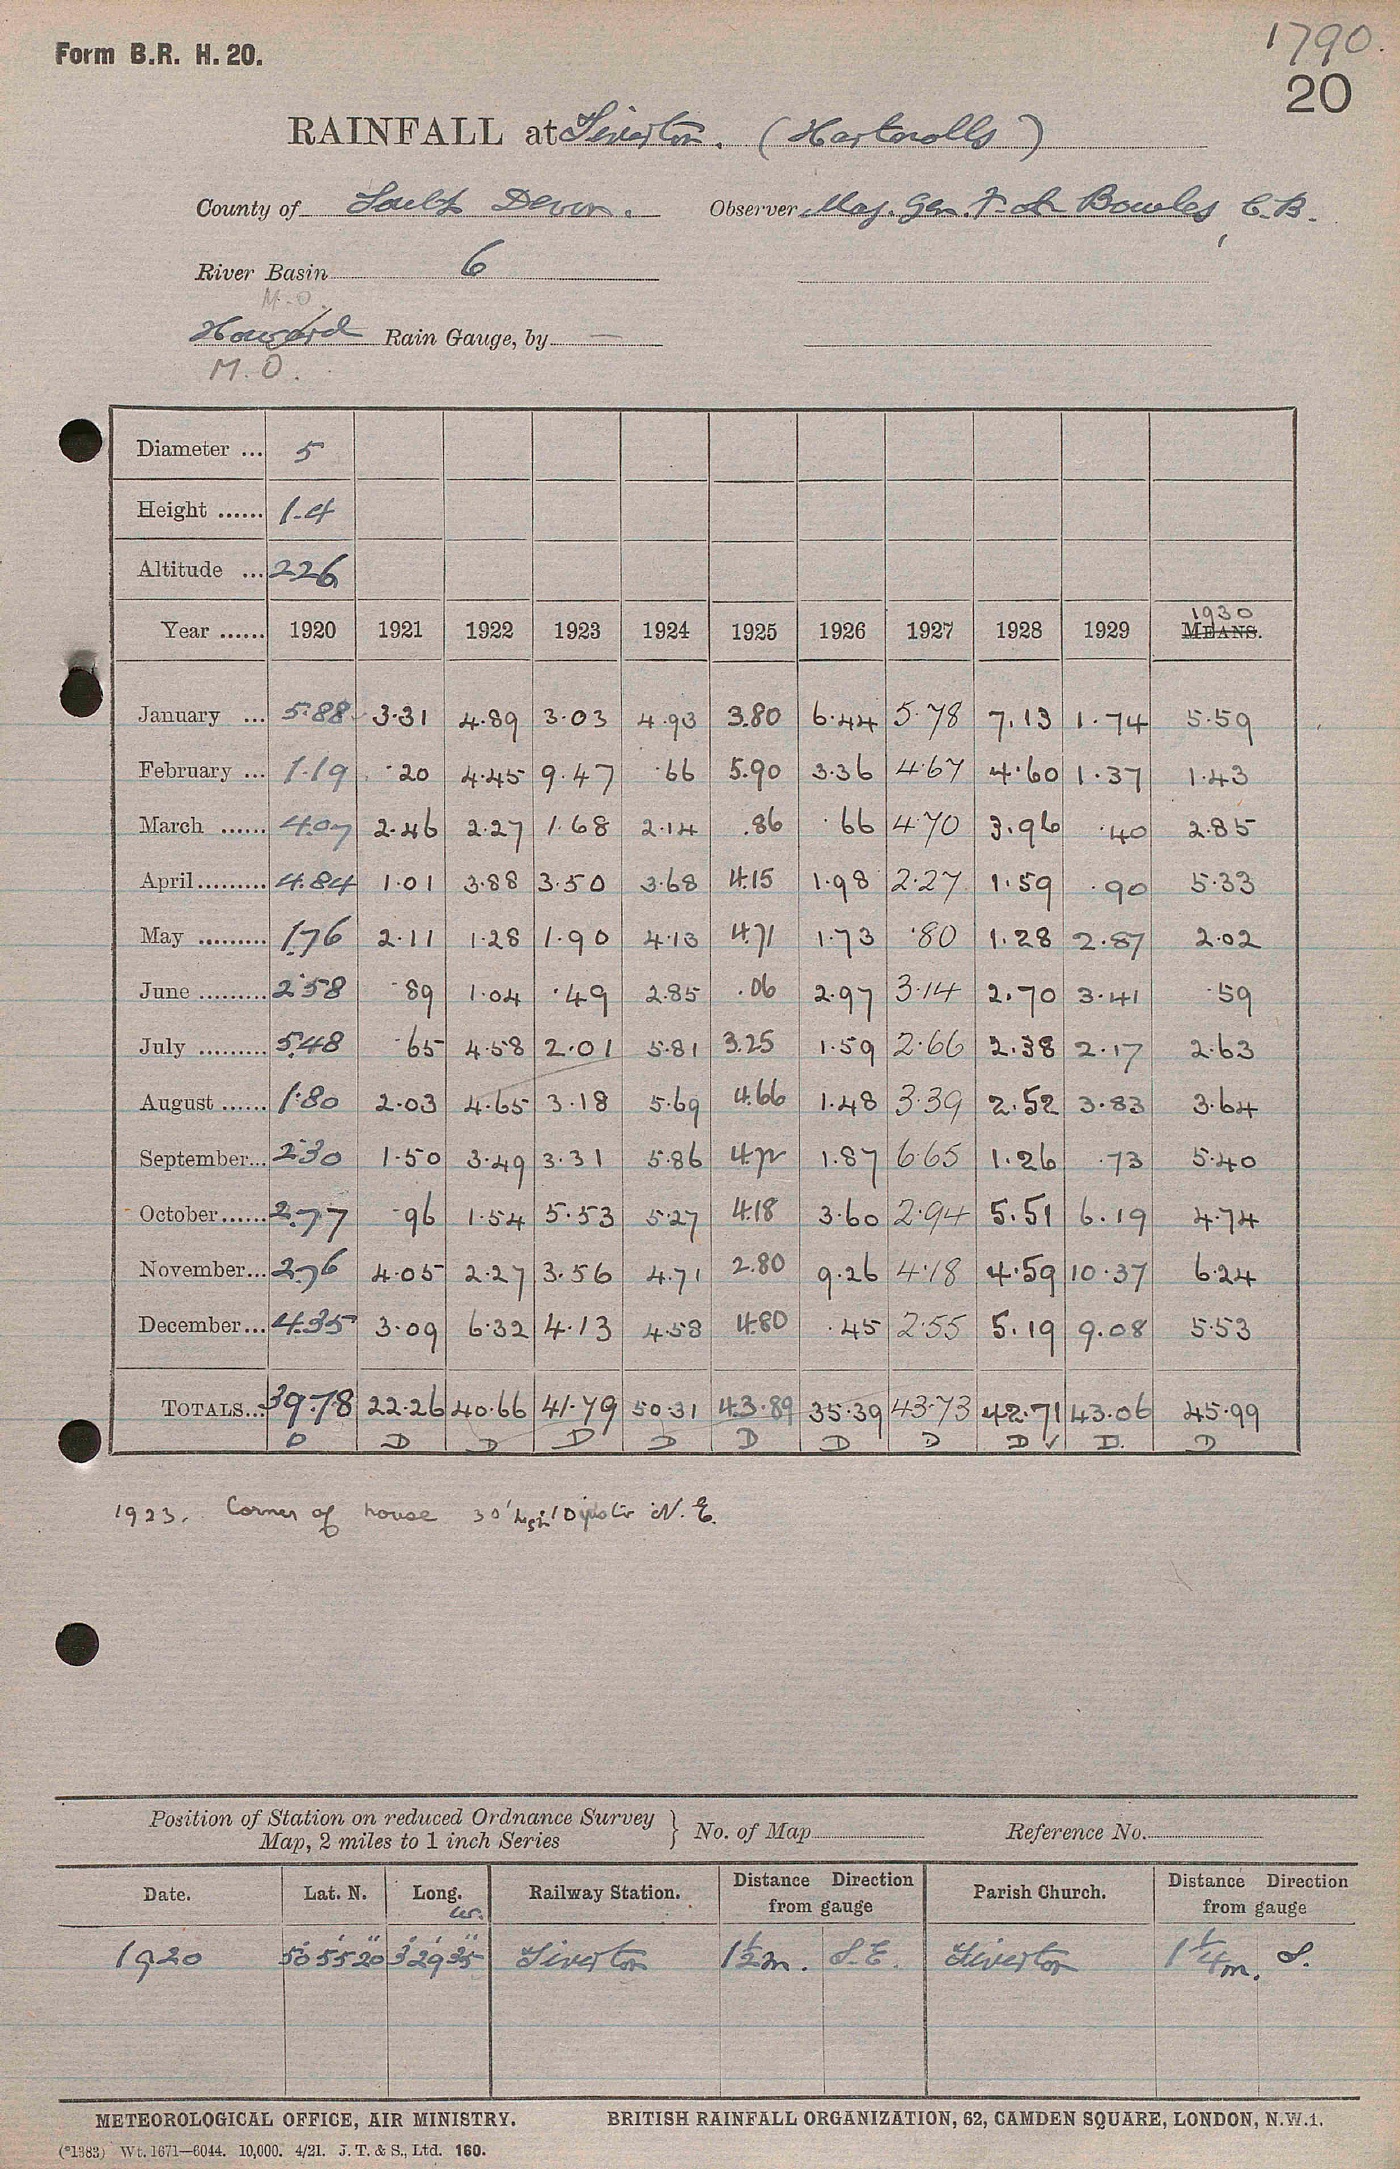 Form B.R. H. 20.
1790.
20
RAINFALL at Tiverton. (Hartnolls)
County of South Devon. Observer Maj. Gen. F. A. Bowles, C.B.
River Basin 6
M.O.
Howard Rain Gauge, by —
M.O.
Diameter ... 5
Height ...... 1.4
Altitude ... 226
Year ...... 1920 1921 1922 1923 1924 1925 1926 1927 1928 1929 1930 MEANS.
January ... 5.88 3.31 4.89 3.03 4.93 3.80 6.44 5.78 7.13 1.74 5.59
February ... 1.19 .20 4.45 9.47 .66 5.90 3.36 4.67 4.60 1.37 1.43
March ...... 4.07 2.46 2.27 1.68 2.14 .86 .66 4.70 3.96 .40 2.85
April ......... 4.84 1.01 3.88 3.50 3.68 4.15 1.98 2.27 1.59 .90 5.33
May ......... 1.76 2.11 1.28 1.90 4.13 4.71 1.73 .80 1.28 2.87 2.02
June ......... 2.58 .89 1.04 .49 2.85 .06 2.97 3.14 2.70 3.41 .59
July ......... 5.48 .65 4.58 2.01 5.81 3.25 1.59 2.66 2.38 2.17 2.63
August ...... 1.80 2.03 4.65 3.18 5.69 4.66 1.48 3.39 2.52 3.83 3.64
September... 2.30 1.50 3.49 3.31 5.86 4.72 1.87 6.65 1.26 .73 5.40
October...... 2.77 .96 1.54 5.53 5.27 4.18 3.60 2.94 5.51 6.19 4.74
November... 2.76 4.05 2.27 3.56 4.71 2.80 9.26 4.18 4.59 10.37 6.24
December... 4.35 3.09 6.32 4.13 4.58 4.80 .45 2.55 5.19 9.08 5.53
TOTALS... 39.78 22.26 40.66 41.79 50.31 43.89 35.39 43.73 42.71 43.06 45.99
D D D D D D D D D ✓ D. D
1923. Corner of house 30' high N.E.
Position of Station on reduced Ordnance Survey
Map, 2 miles to 1 inch Series } No. of Map Reference No.
Date. Lat. N. Long. W. Railway Station. Distance Direction from gauge Parish Church. Distance Direction from gauge
1920 50° 55' 20" 3° 29' 35" Tiverton 1½ m. S.E. Tiverton 1¼ m. S.
METEOROLOGICAL OFFICE, AIR MINISTRY. BRITISH RAINFALL ORGANIZATION, 62, CAMDEN SQUARE, LONDON, N.W.1.
(*1383) Wt. 1671—6044. 10,000. 4/21. J. T. & S., Ltd. 160.